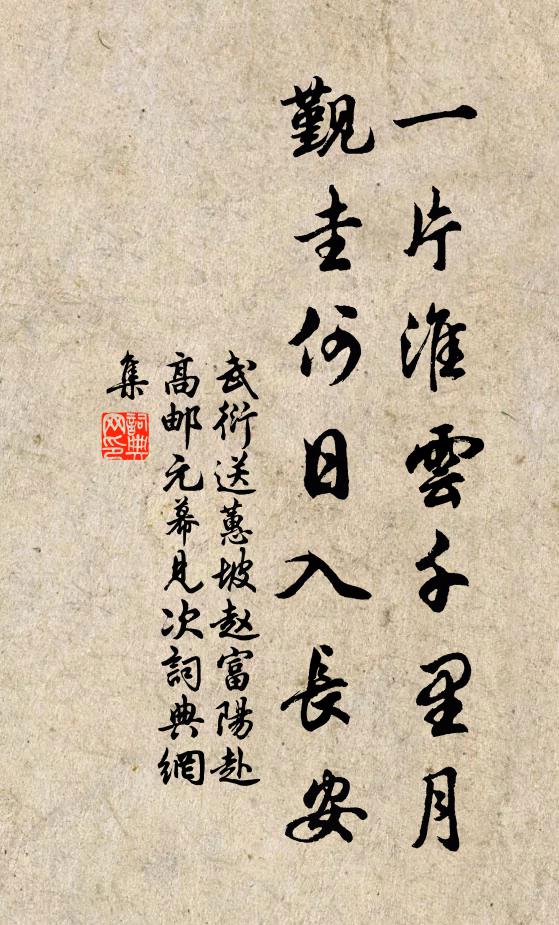 一片淮雲千里月
觐圭何日入長安
武衍送蕙坡赵富陽赴
高邮元幕見次詞典網
集
詞典
网印